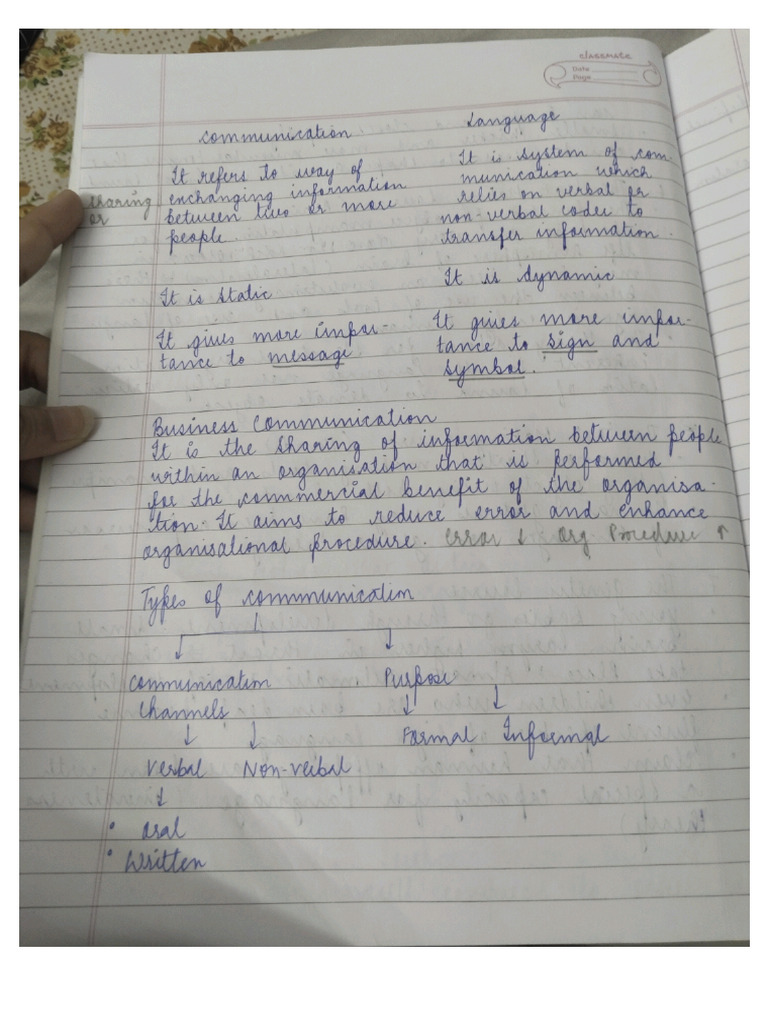 classmate
Date
Page
Communication
It refers to way of
sharing or
exchanging information
between two or more
people
It is static
It gives more impor-
tance to message
Language
It is system of com-
munication which
relies on verbal or
non-verbal codes to
transfer information.
It is dynamic
It gives more impor-
tance to sign and
symbol.
Business Communication
It is the sharing of information between people
within an organisation that is performed
for the commercial benefit of the organisa-
tion. It aims to reduce error and enhance
organisational procedure. error ↓ org Procedure ↑
Types of communication
Communication Purpose
Channels
Formal Informal
Verbal Non-verbal
• Oral
• Written